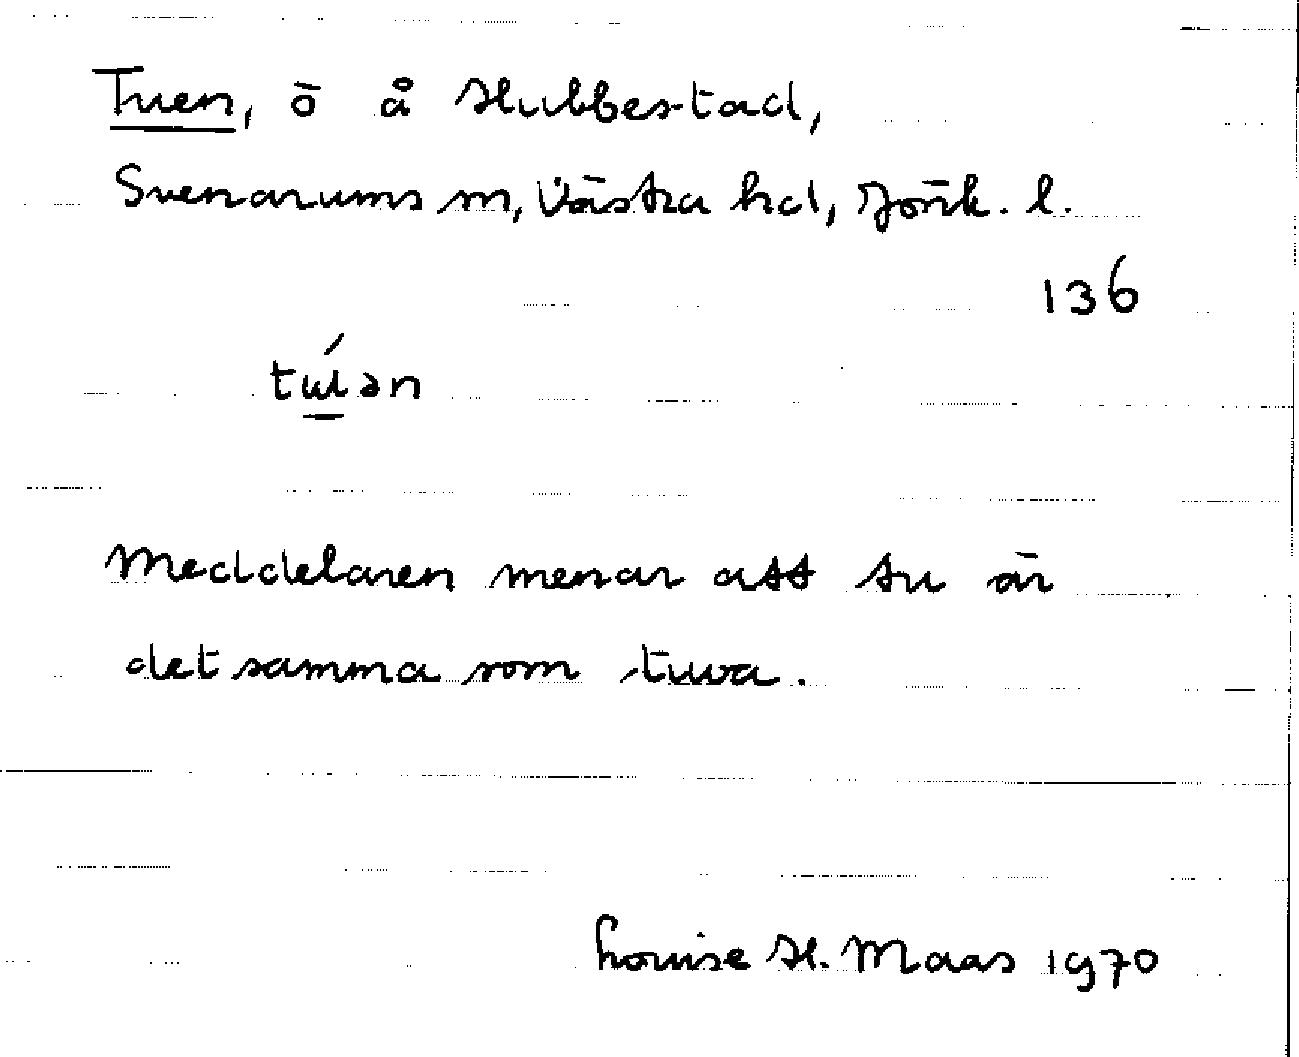 Tuen, ö å Hubbestad,
Svenarums sn, Västra hd, Jönk. l.
136
Meddelaren menar att tu är
det samma som tuva.
Louise H. Maas 1970